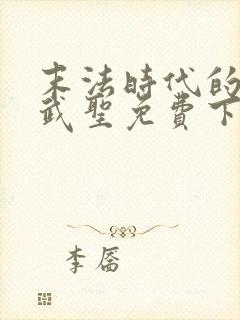 末法時代的
武聖免費下
李厝